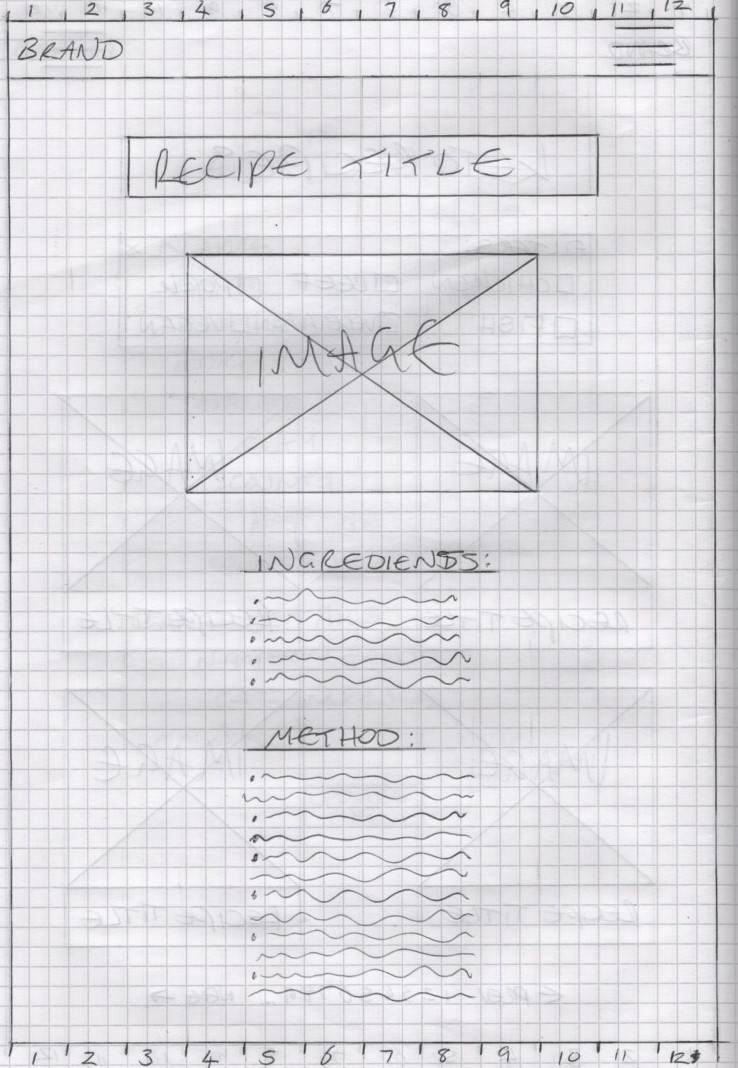 1 2 3 4 5 6 7 8 9 10 11 12
BRAND
RECIPE TITLE
IMAGE
INGREDIENTS:
METHOD:
1 2 3 4 5 6 7 8 9 10 11 12